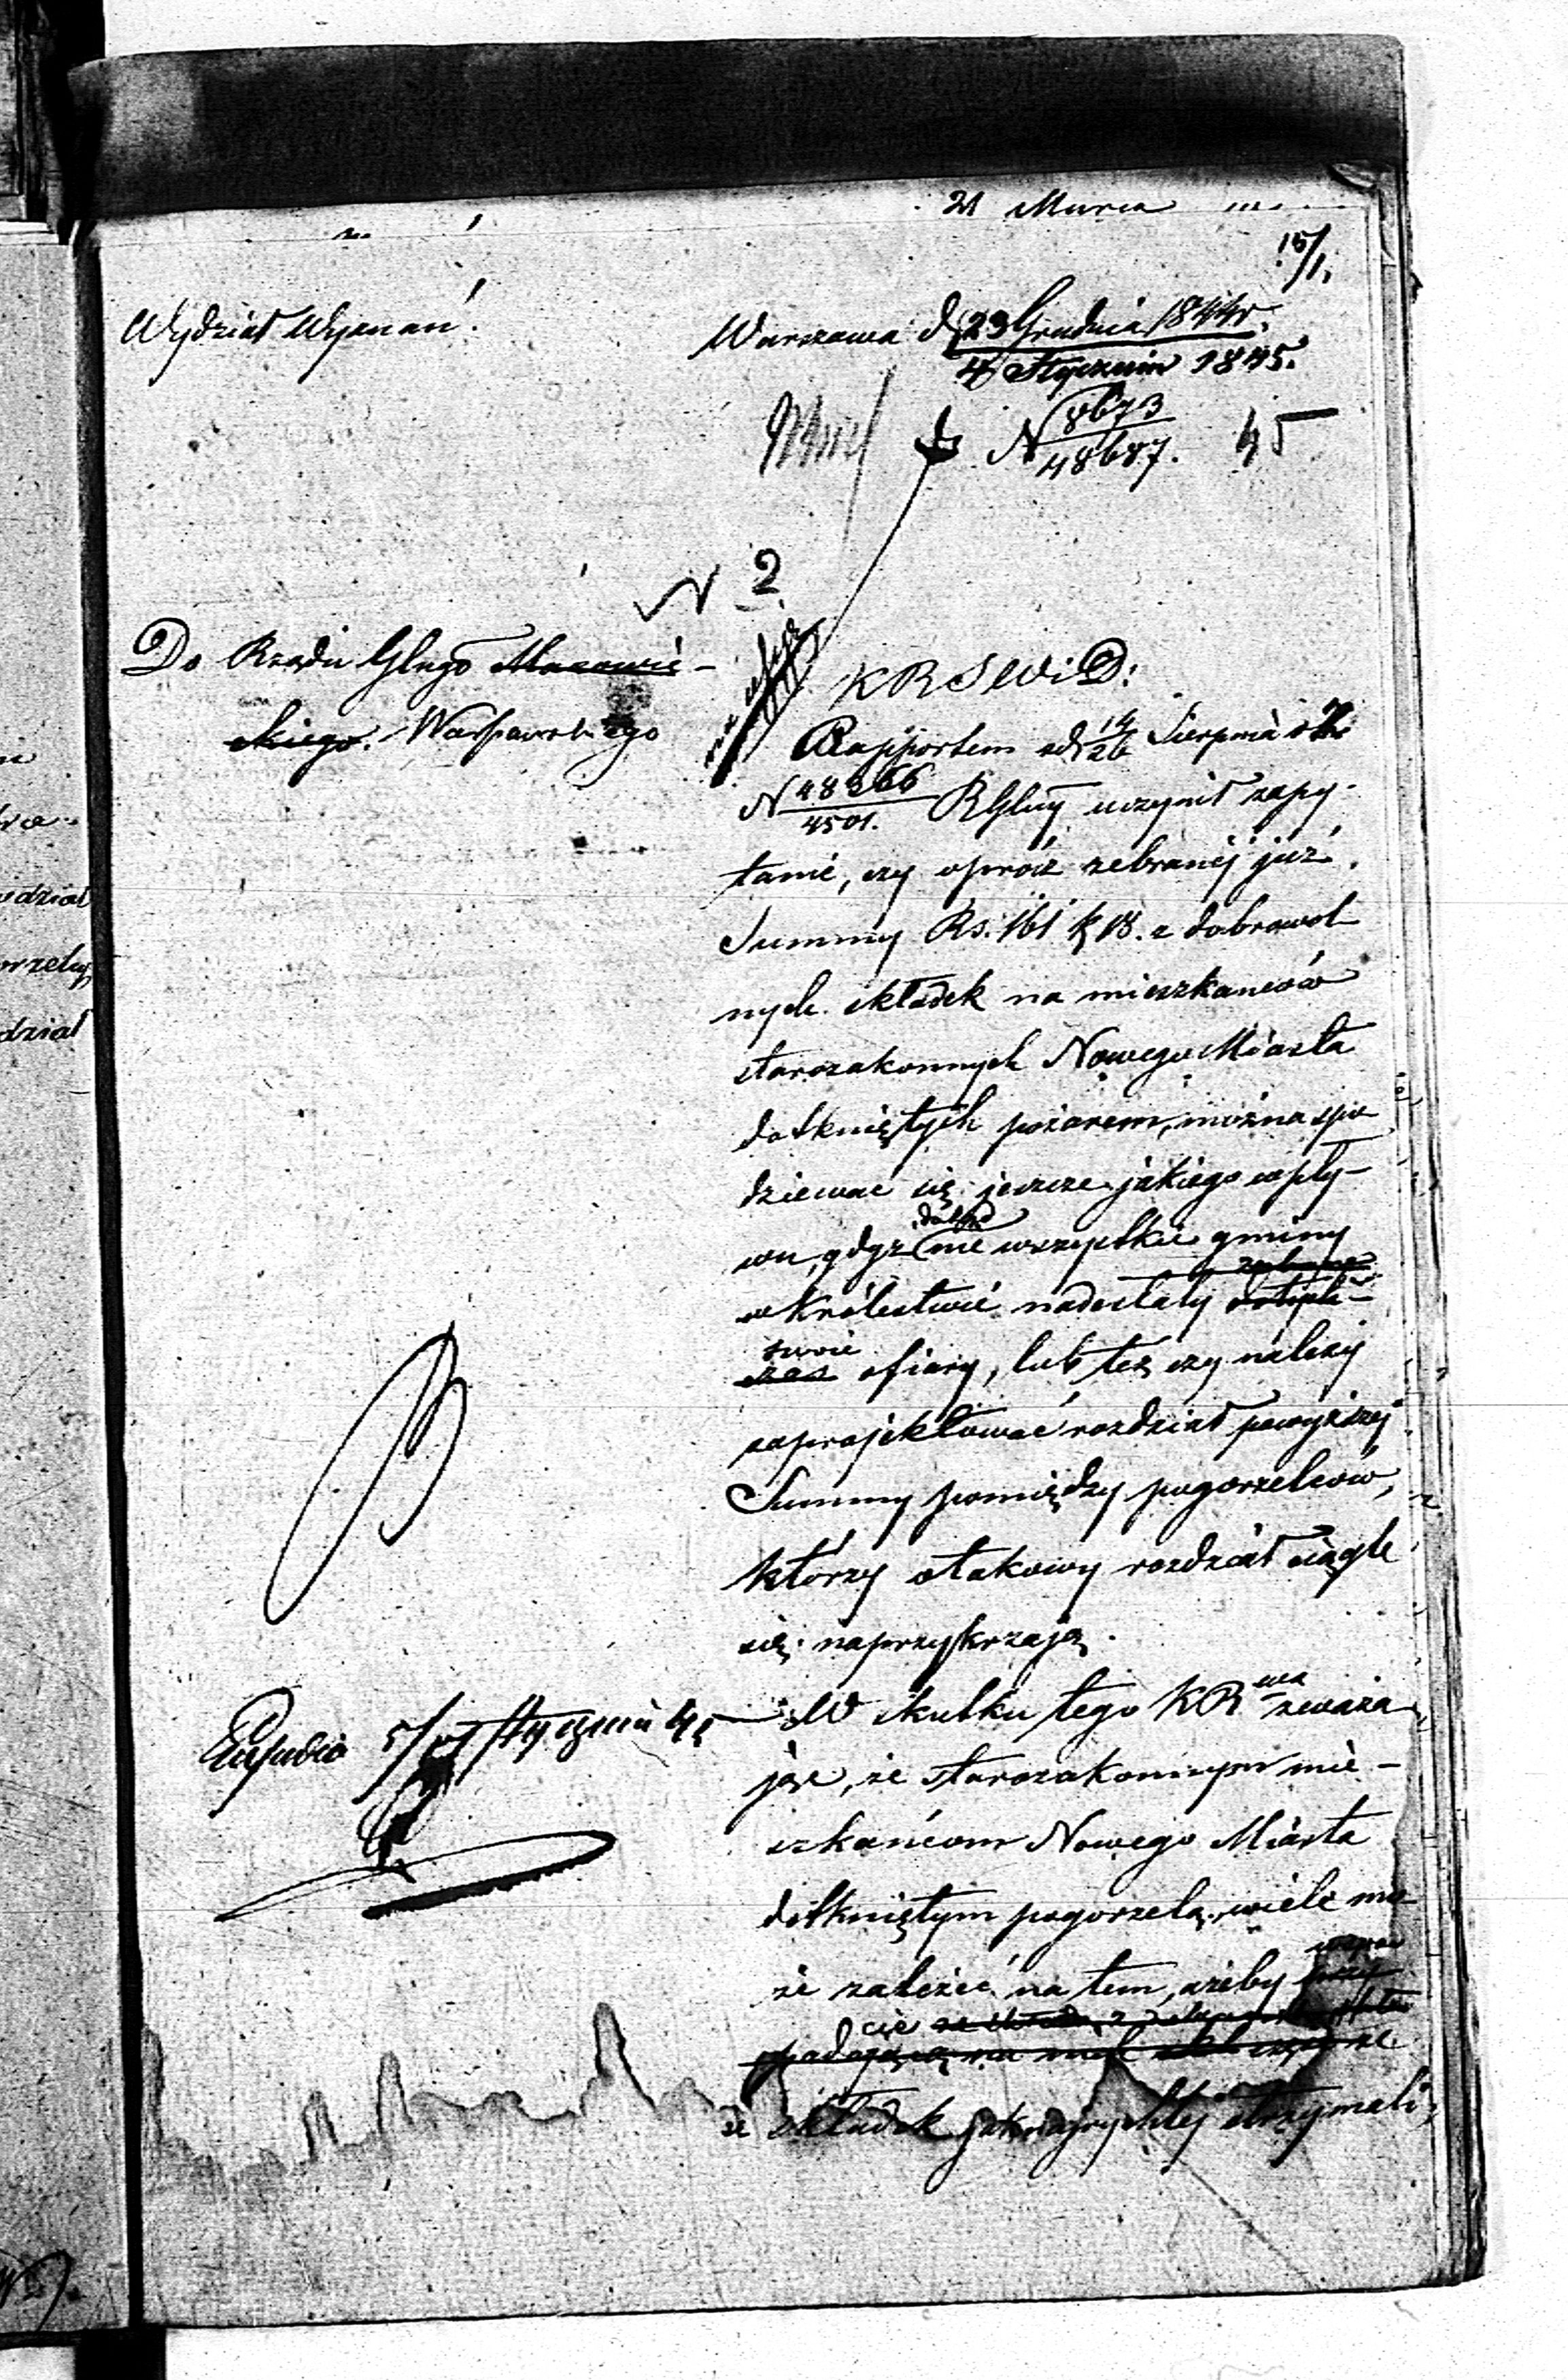 21 Marca
15/1
Wydział Wyznań.
Warszawa d 23 Grudnia 1844 r.
4 Stycznia 1845.
N 8673
48687. 45
N 2
Do Rządu Glngo Mazowie-
ckiego. Warszawskiego
KRSWiD:
Rapportem od 14/26 Sierpnia
N 48366
4501. RGlny uczynił zapy-
tanie, czy oprócz zebranéj już
Summy Rs. 161 k 18. z dobrowol
nych składek na mieszkańców
starozakonnych Nowego Miasta
dotkniętych pożarem, można spo
dziewać się jeszcze jakiego wpły-
wu, gdyż nie wszystkie gminy
w Królestwie nadesłały dotych-
swoie
czas ofiary, lub też czy należy
zaprojektować rozdział powyższej
Summy pomiędzy pogorzelców,
którzy o takowy rozdział ciągle
się naprzykrzają.
W skutku tego KRwa zważa
jąc, że starozakonnym mie-
szkańcom Nowego Miasta
dotkniętym pogorzelą, wiele mo
że zależeć na tem, ażeby
cie
padającą na
ze składek jaknajrychlej otrzymali,
5/17 Stycznia 45